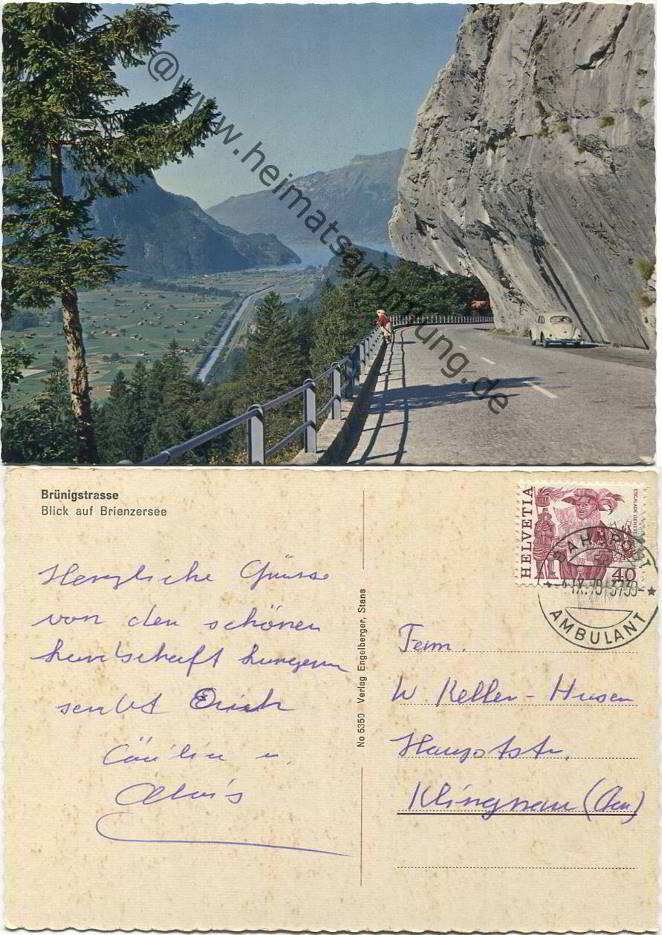 @ www.heimatsammlung.de
Brünigstrasse
Blick auf Brienzersee
HELVETIA
40
BAHNPOST
AMBULANT
No 5350 Verlag Engelberger, Stans
Herzliche Grüsse
von den schönen
Landschaft Lungern
sendet Erich
Cäcilia u.
Alois
Fam.
W. Keller-Husen
Hauptstr.
Klingnau